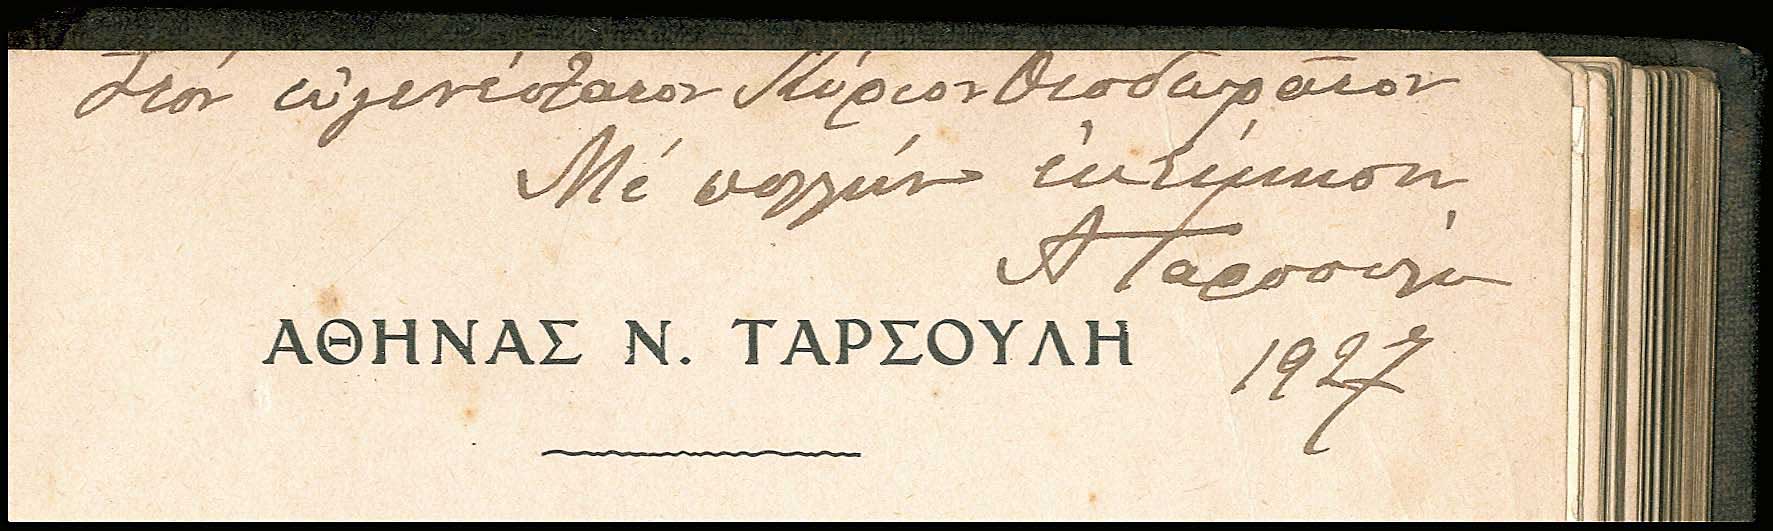 Στόν εὐγενέστατον Κύριον Θεοδωρᾶτον
Μέ πολλήν ἐκτίμηση
Α Ταρσούλη
ΑΘΗΝΑΣ Ν. ΤΑΡΣΟΥΛΗ
1927